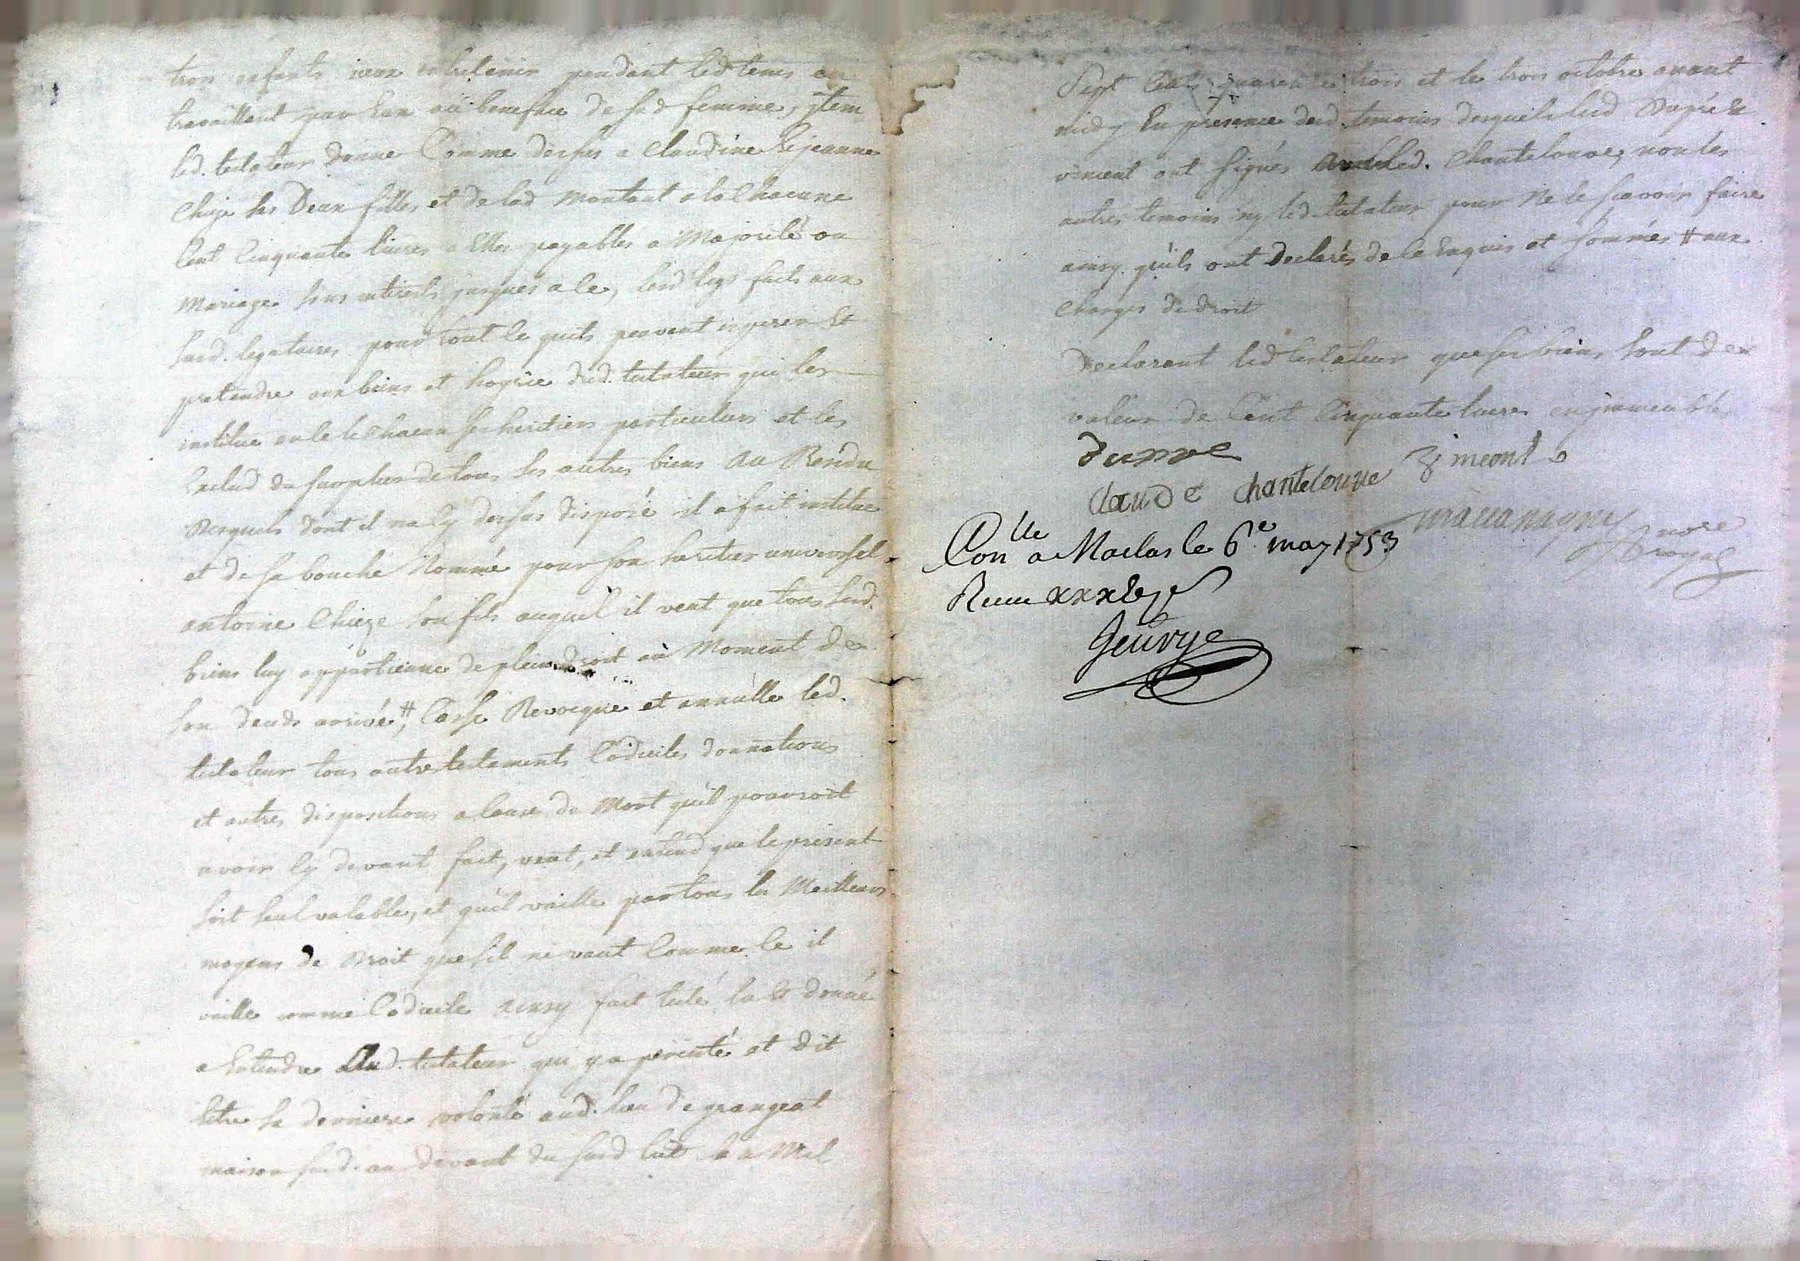 trois enfants iceux entretenir pendant led tems en
travaillant par Eux au benefice de sd femme, jtem
led. testateur donne Comme dessus a Claudine & jeanne
Chieze ses Deux filles et de lad montaut a la Chacune
Cent Cinquante livres a Elles payables a Majorité ou
Mariage sans interets jusques a ce, lesd legs faits aux
susd. legataires pour tout ce quils peuvent esperer Et
pretendre aux biens et hoyrie dud. testateur qui les
institue en ce Chacun ses heritiers particuliers et les
Exclud du surplus de tous ses autres biens Au Residu
Desquels dont il na Cy dessus disposé il a fait institue
et de sa bouche Nommé pour son heritier universel
antoine Chieze son fils auquel il veut que tous sesd.
biens luy appartienne de plein droit au Moment de
son deceds arrivé #, Casse Revocque et annulle led.
testateur tous autres testaments Codiciles donnations
et autres dispositions a Cause de Mort quil pourroit
avoir Cy devant fait, veut, et entend que le present
soit seul valable, et quil vaille par tous les Meilleurs
moyens de Droit que sil ne vaut Comme ce il
vaille comme Codicile Ainsy fait testé lu & donné
a Entendre Aud. testateur qui y a persisté et dit
Estre sa derniere volonté aud. lieu de grangeat
maison sud. au devant du susd lit la a Mil
Sept Cent quarente trois et le trois octobre avant
midy En presence desd. temoins desquels led Dupré &
viment ont signés avec led. Chantelouve, non les
autres temoins ny led. testateur pour Ne le scavoir faire
ainsy quils ont declarés de ce Enquis et sommés # aux
charges de droit
Declarant led testateur que ses biens sont de
valeur de Cent Cinquante livres en jmmeubles
Claude Chantelouve
Con lle a Maclas le 6e may 1753